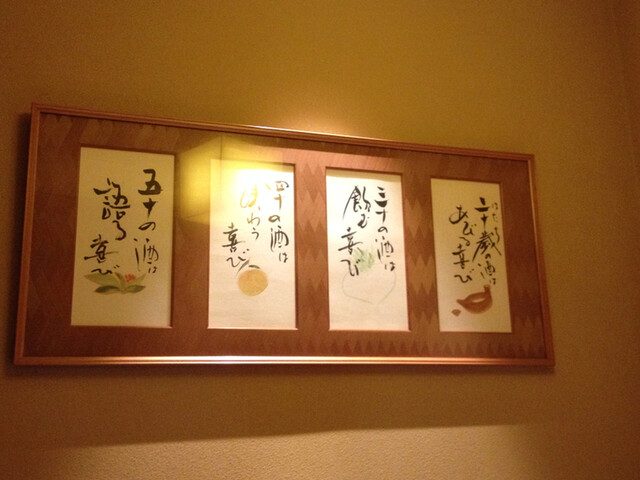 はたち
二十歳の酒は
あびる喜び
三十の酒は
飲む喜び
四十の酒は
味わう
喜び
五十の酒は
語る
喜び